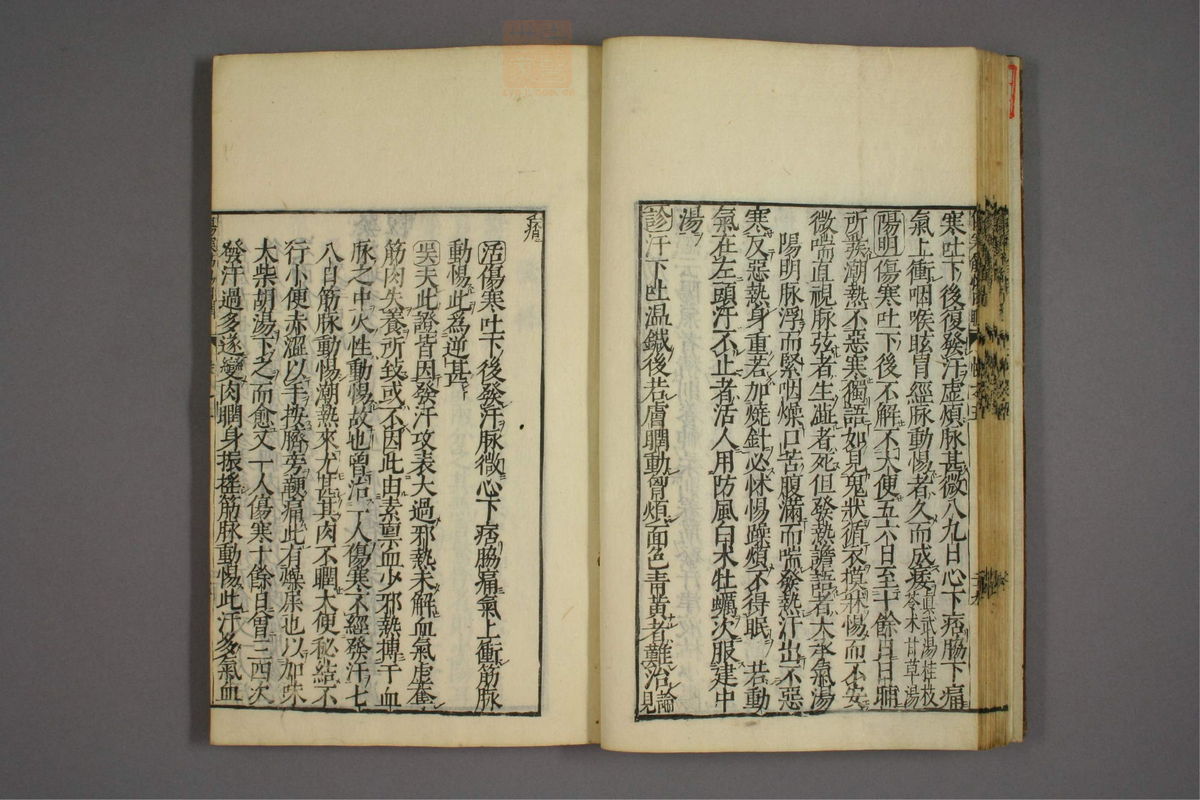 寒吐下後復發汗虛煩脉甚微八九日心下痞脇下痛
氣上衝咽喉眩冒經脉動惕者久而成痿眞武湯桂枝苓术甘草湯
陽明傷寒吐下後不解不大便五六日至十餘日日晡
所發潮熱不惡寒獨語如見鬼狀循衣摸牀惕而不安
微喘直視脉弦者生濇者死但發熱譫語者大承氣湯
陽明脉浮而緊咽燥口苦腹滿而喘發熱汗出不惡
寒反惡熱身重若加燒針必怵惕躁煩不得眠 若動
氣在左頭汗不止者活人用防風白术牡蠣次服建中
湯
診汗下吐温鍼後若膚瞤動胷煩面色青黃者難治論見
活傷寒吐下後發汗脉微心下痞脇痛氣上衝筋脉
動惕此爲逆甚
吴夫此證皆因發汗攻表大過邪熱未解血氣虛奪
筋肉失養所致或不因此由素禀血少邪熱搏于血
脉之中火性動惕故也曾治一人傷寒不經發汗七
八日筋脉動惕潮熱來尤甚其肉不瞤大便秘結不
行小便赤澀以手按臍旁硬痛此有燥屎也以加味
大柴胡湯下之而愈又一人傷寒十餘日曾三四次
發汗過多遂變肉瞤身振搖筋脉動惕此汗多氣血